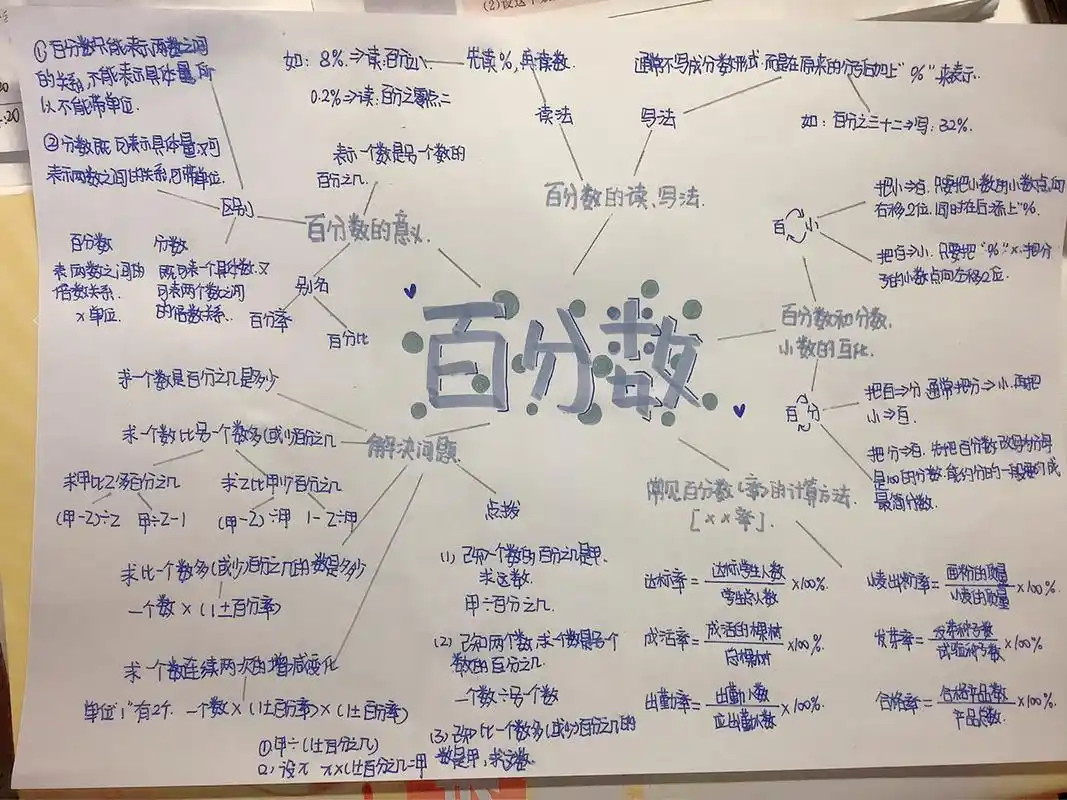 ①百分数只能表示两数之间
的关系,不能表示具体量,所
以不能带单位.
②分数既可表示具体量又可
表示两数之间的关系,可带单位.
区别
百分数
表两数之间的
倍数关系.
x单位.
分数
既可表一个具体数,又
可表两个数之间
的倍数关系.
如: 8%.⇒读:百分之八
先读%,再读数.
0.2%⇒读:百分之零点二
读法
写法
通常不写成分数形式.而是在原来的分子后加上"%"来表示.
如:百分之三十二⇒写:32%.
表示一个数是另一个数的
百分之几.
百分数的意义.
别名
百分率
百分比
百分数的读、写法.
百 小
把小⇒百.只要把小数的小数点向
右移2位.同时在后添上"%.
把百⇒小.只要把"%"x.把分
子的小数点向左移2位.
百分数和分数、
小数的互化.
百 分
把百⇒分 通常把分⇒小.再把
小⇒百.
把分⇒百.先把百分数改写为分母
是100的分数.能约分的一般要约成
最简分数.
百分数
解决问题.
求一个数是百分之几是多少
求一个数比另一个数多(或少)百分之几
求甲比乙多百分之几
求乙比甲少百分之几
(甲-乙)÷乙
甲÷乙-1
(甲-乙)÷甲
1-乙÷甲
求比一个数多(或少)百分之几的数是多少
一个数×(1±百分率)
求一个数连续两次的增减变化
单位"1"有2个.
一个数×(1±百分率)×(1±百分率)
点拨
(1) 已知一个数的百分之几是甲.
求这数.
甲÷百分之几.
(2) 已知两个数,求一个数是另一个
数的百分之几.
一个数÷另一个数
(3) 已知比一个数多(或少)百分之几的
数是甲,求这数.
①.甲÷(1±百分之几)
2)设x x×(1±百分之几=甲
常见百分数(率)的计算方法.
[××率].
达标率=达标学生人数/学生总人数×100%.
小麦出粉率=面粉的质量/小麦的质量×100%.
成活率=成活的棵树/总棵树×100%.
发芽率=发芽种子数/试验种子数×100%
出勤率=出勤人数/应出勤人数×100%.
合格率=合格产品数/产品总数.×100%.